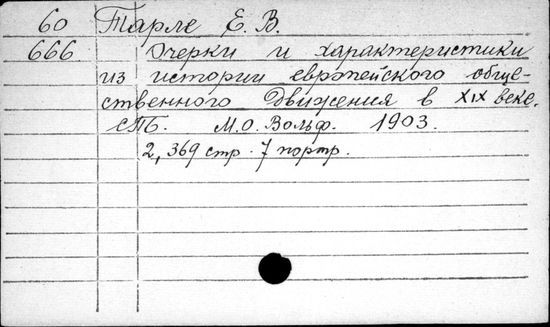 60 Тарле Е. В.
666 Очерки и характеристики
из истории европейского обще-
ственного движения в XIX веке.
СПБ. М.О. Вольф. 1903.
2, 369 стр. 7 портр.